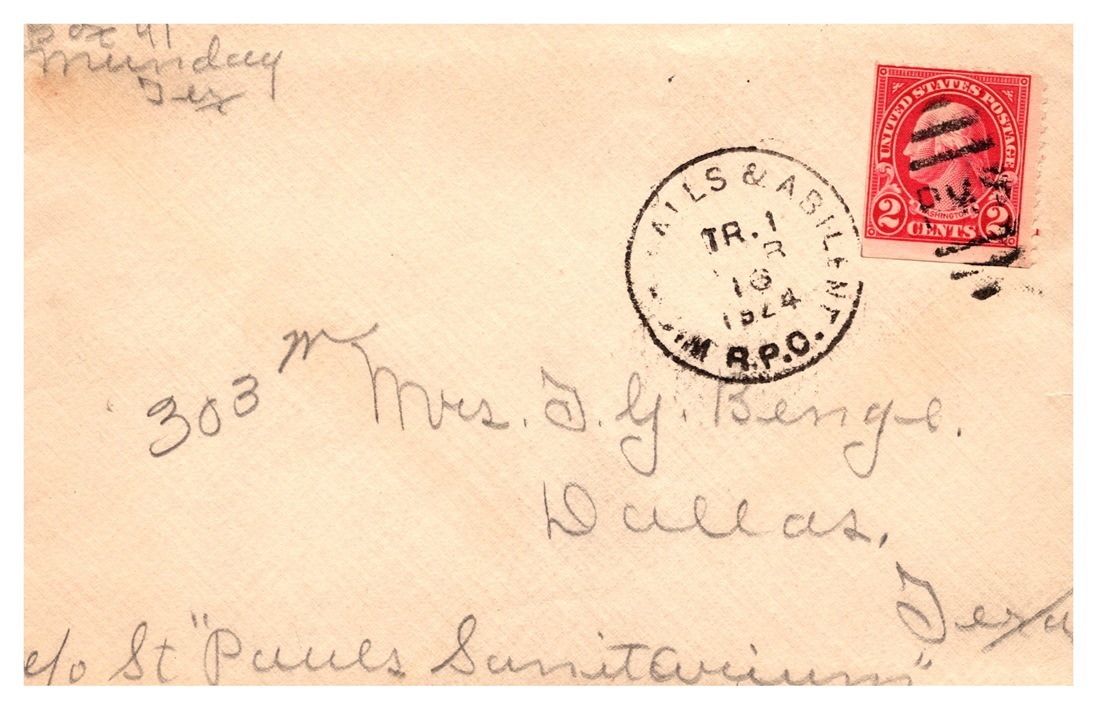 Box 41
Munday
Tex
UNITED STATES POSTAGE
WASHINGTON
2 CENTS 2
ALLS & ABILENE
TR. 1
16
1924
R.P.O.
303 Mrs. T. G. Benge.
Dallas,
Texa
c/o St "Pauls Sanitarium"